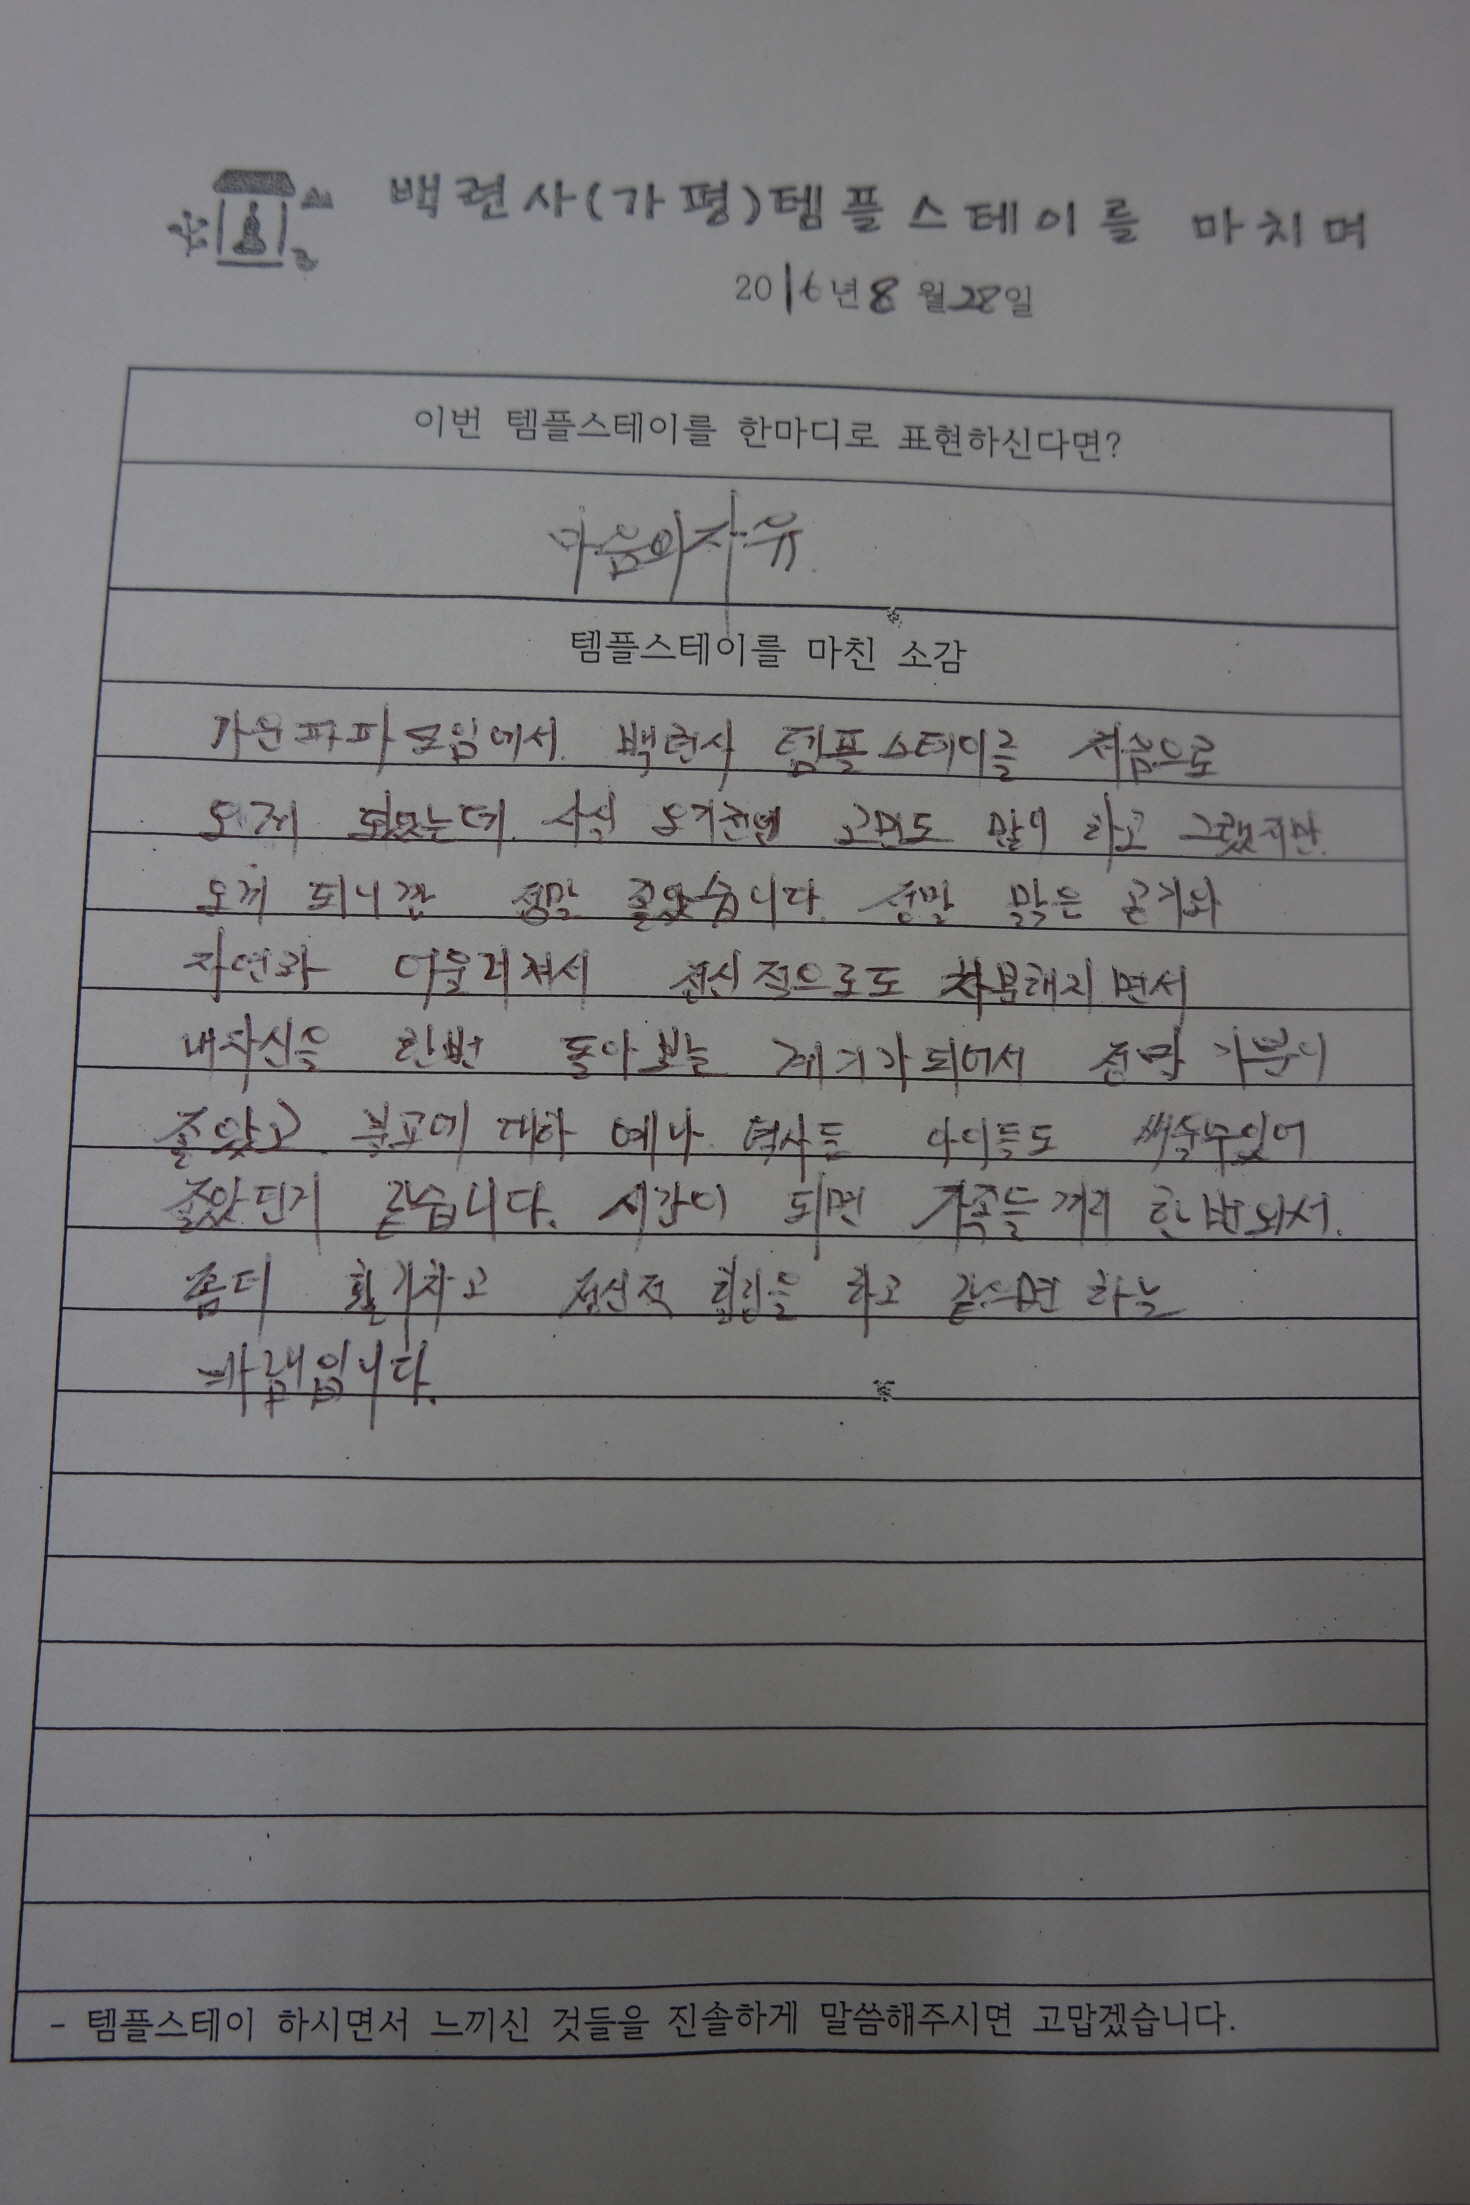 백련사(가평)템플스테이를 마치며
2016년 8월 28일
이번 템플스테이를 한마디로 표현하신다면?
마음의 자유.
템플스테이를 마친 소감
가온파파모임에서. 백련사 템플스테이를 처음으로
오게 되었는데. 사실 오기전엔 고민도 많이 하고 그랬지만.
오게 되니깐 정말 좋았습니다. 정말 맑은 공기와
자연과 어울려져서 정신적으로도 차분해지면서
내자신을 한번 돌아보는 계기가되어서 정말 기분이
좋았고. 불교에 대한 예나 역사들 아이들도 배울수있어
좋았던거 같습니다. 시간이 되면 가족들끼리 한번와서.
좀더 활기차고 정신적 힐링을 하고 갔으면 하는
바램입니다.
- 템플스테이 하시면서 느끼신 것들을 진솔하게 말씀해주시면 고맙겠습니다.